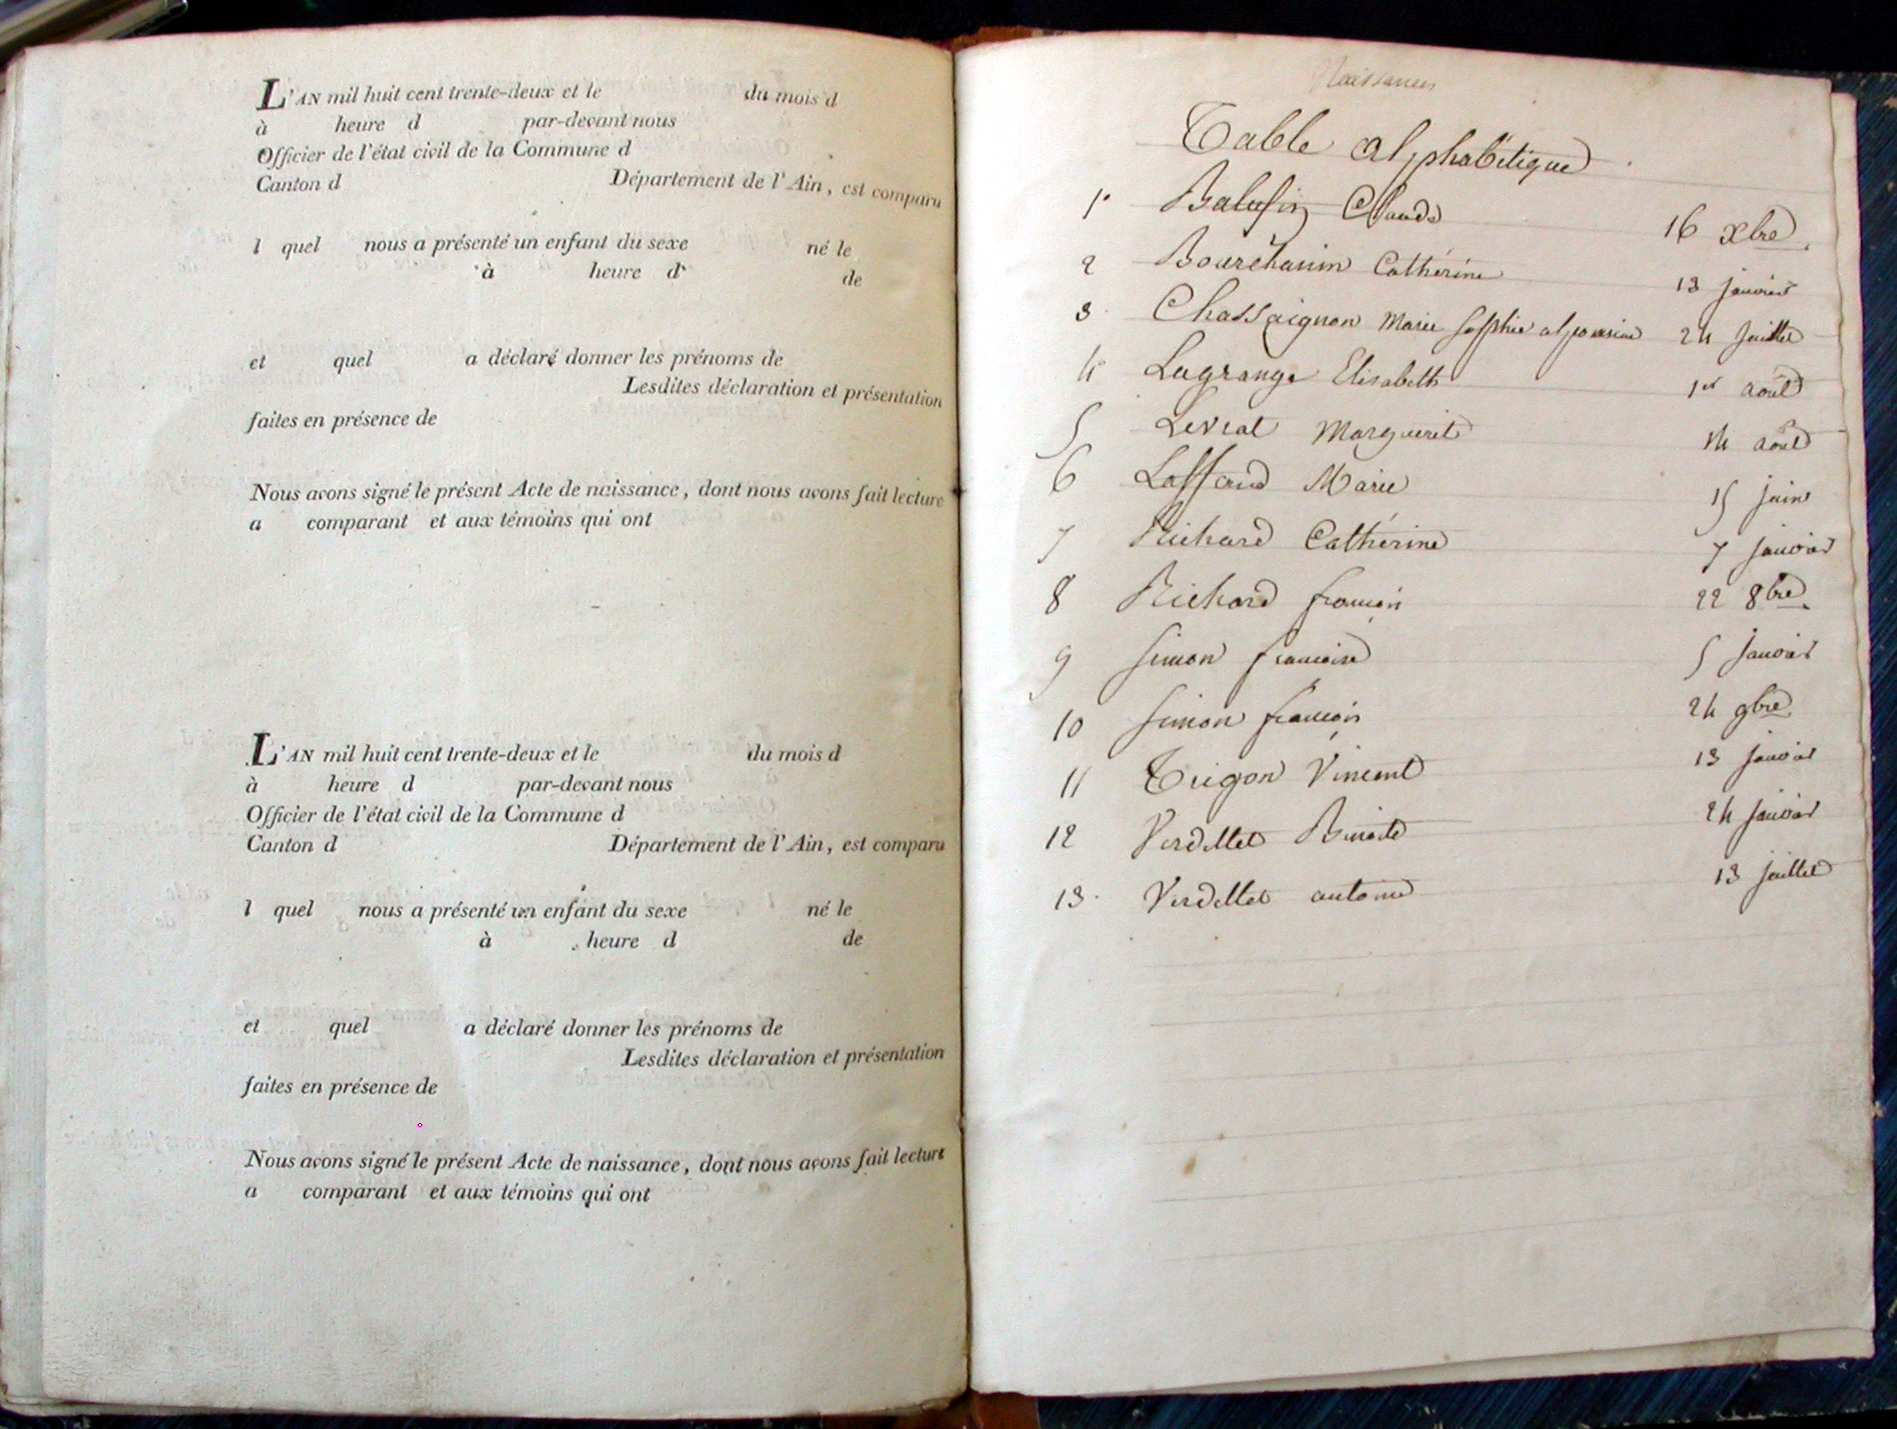 L'AN mil huit cent trente-deux et le du mois d
à heure d par-devant nous
Officier de l'état civil de la Commune d
Canton d Département de l'Ain, est comparu
l quel nous a présenté un enfant du sexe né le
à heure d de
et quel a déclaré donner les prénoms de
Lesdites déclaration et présentation
faites en présence de
Nous avons signé le présent Acte de naissance, dont nous avons fait lecture
a comparant et aux témoins qui ont
L'AN mil huit cent trente-deux et le du mois d
à heure d par-devant nous
Officier de l'état civil de la Commune d
Canton d Département de l'Ain, est comparu
l quel nous a présenté un enfant du sexe né le
à heure d de
et quel a déclaré donner les prénoms de
Lesdites déclaration et présentation
faites en présence de
Nous avons signé le présent Acte de naissance, dont nous avons fait lecture
a comparant et aux témoins qui ont
Naissances
Table alphabétique
1° Claude 16 xbre
2 Bourchanin Catherine 13 janvier
3 Chassaignon Marie Sophie alphonsine 24 juillet
4 Lagrange Elisabeth 1er août
5 Levrat Marguerite 14 août
6 Laffand Marie 15 juin
7 Richard Catherine 7 janvier
8 Richard françois 22 8bre
9 Simon francoise 5 janvier
10 Simon françois 24 9bre
11 Trigon Vincent 13 janvier
12 Verdellet Benoite 24 janvier
13 Verdellet antoine 13 juillet